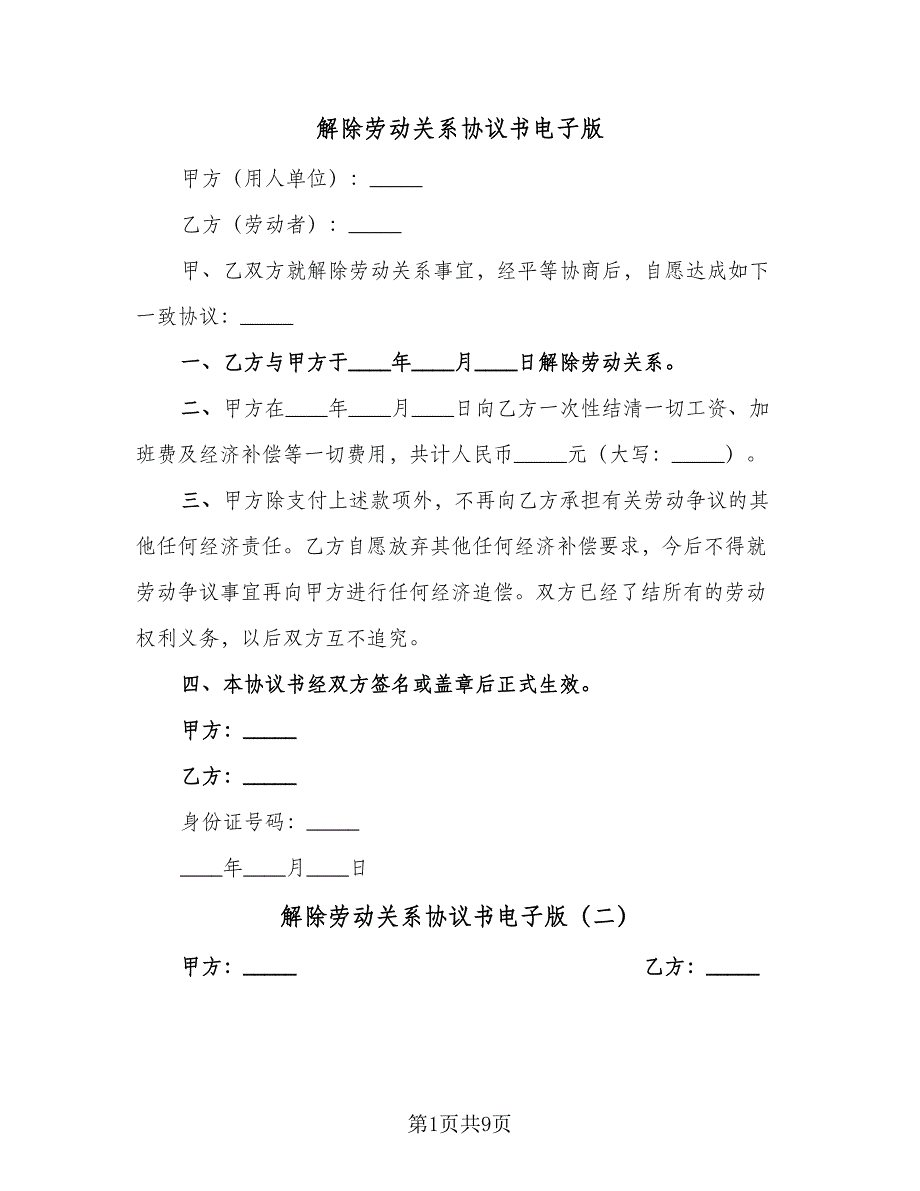 解除劳动关系协议书电子版
甲方（用人单位）：_____
乙方（劳动者）：_____
甲、乙双方就解除劳动关系事宜，经平等协商后，自愿达成如下
一致协议：_____
一、乙方与甲方于____年____月____日解除劳动关系。
二、甲方在____年____月____日向乙方一次性结清一切工资、加
班费及经济补偿等一切费用，共计人民币_____元（大写：_____）。
三、甲方除支付上述款项外，不再向乙方承担有关劳动争议的其
他任何经济责任。乙方自愿放弃其他任何经济补偿要求，今后不得就
劳动争议事宜再向甲方进行任何经济追偿。双方已经了结所有的劳动
权利义务，以后双方互不追究。
四、本协议书经双方签名或盖章后正式生效。
甲方：_____
乙方：_____
身份证号码：_____
____年____月____日
解除劳动关系协议书电子版（二）
甲方：_____ 乙方：_____
第1页共9页